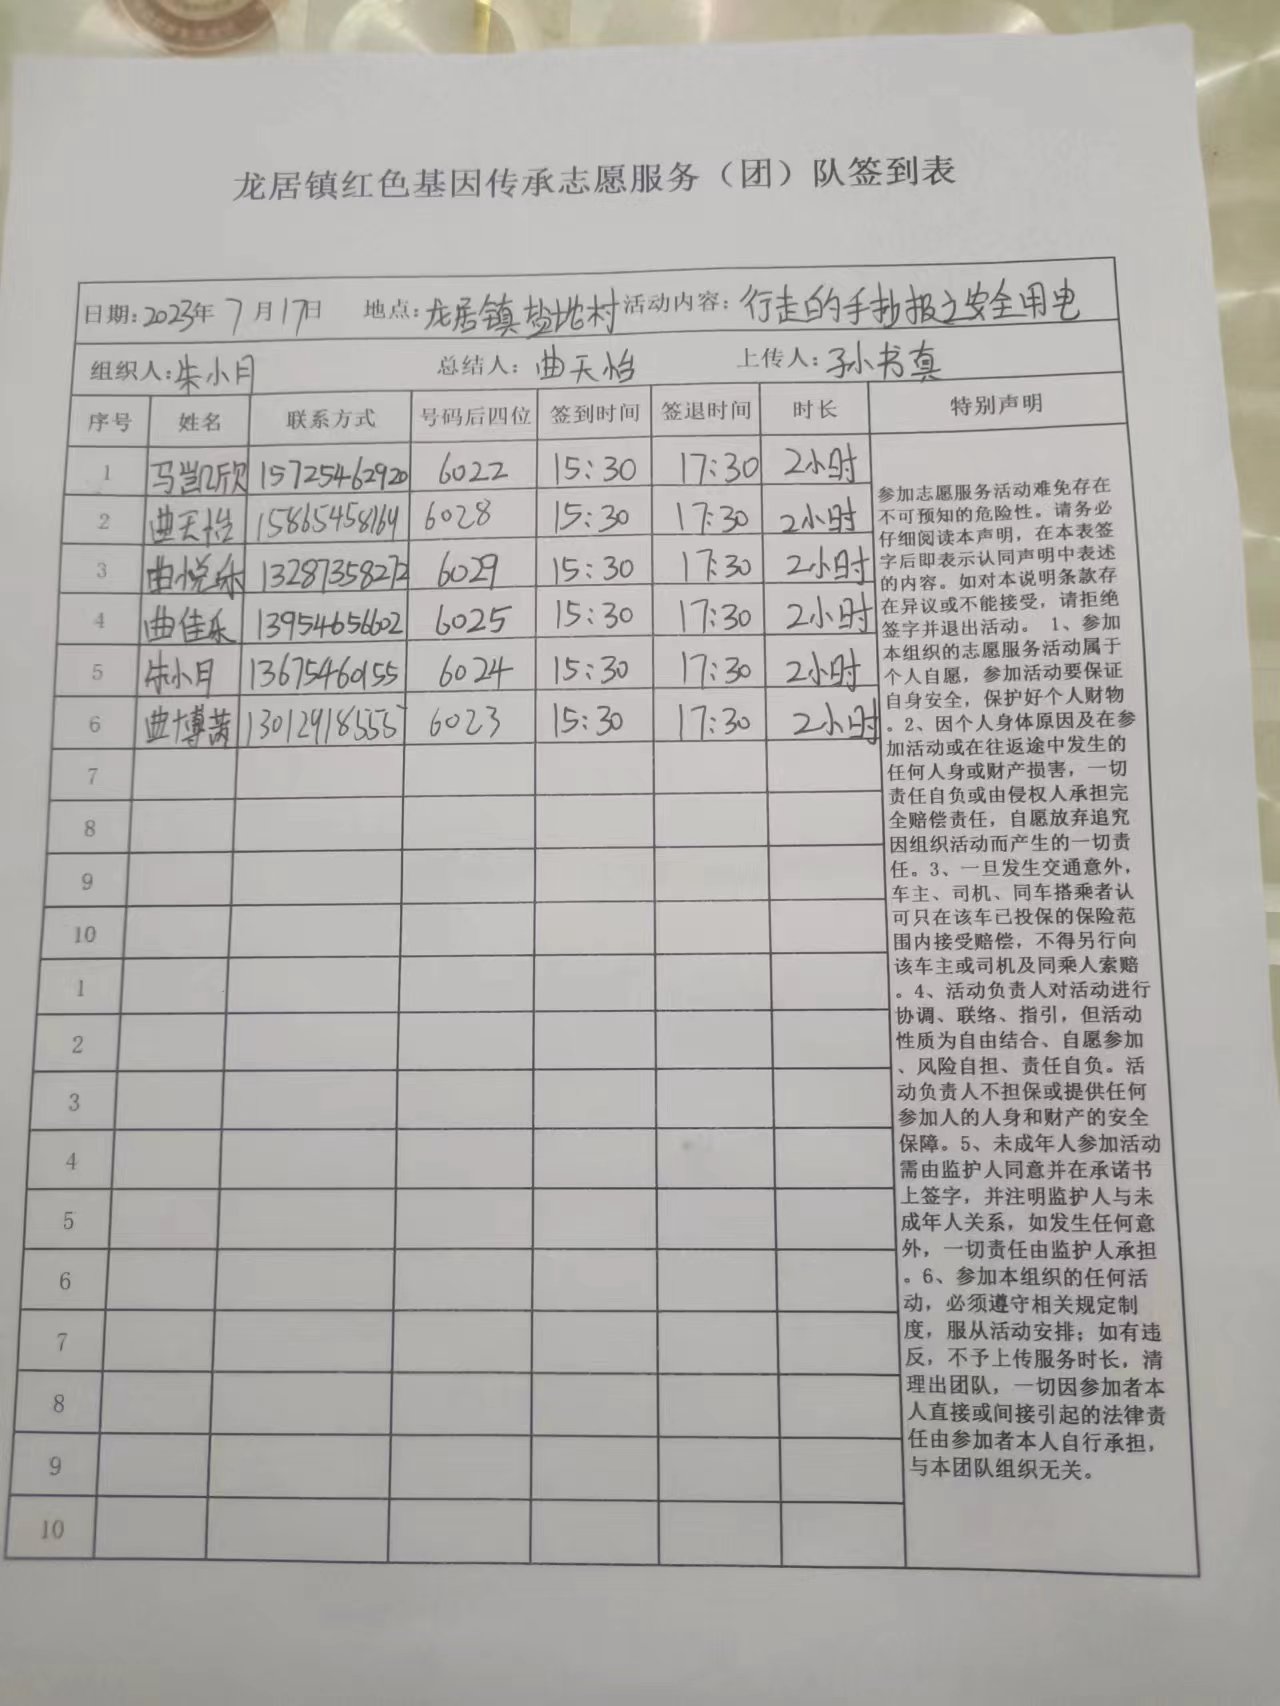 龙居镇红色基因传承志愿服务（团）队签到表
日期:2023年7月17日 地点:龙居镇盐垞村 活动内容:行走的手抄报之安全用电
组织人:朱小月 总结人:曲天怡 上传人:孙书真
序号 姓名 联系方式 号码后四位 签到时间 签退时间 时长 特别声明
1 马凯欣 15725462920 6022 15:30 17:30 2小时
2 曲天怡 15865458164 6028 15:30 17:30 2小时
3 曲悦乐 13287358272 6029 15:30 17:30 2小时
4 曲佳乐 13954656602 6025 15:30 17:30 2小时
5 朱小月 13675460155 6024 15:30 17:30 2小时
6 曲博茜 13012918555 6023 15:30 17:30 2小时
7
8
9
10
1
2
3
4
5
6
7
8
9
10
参加志愿服务活动难免存在
不可预知的危险性。请务必
仔细阅读本声明，在本表签
字后即表示认同声明中表述
的内容。如对本说明条款存
在异议或不能接受，请拒绝
签字并退出活动。 1、参加
本组织的志愿服务活动属于
个人自愿，参加活动要保证
自身安全，保护好个人财物
。2、因个人身体原因及在参
加活动或在往返途中发生的
任何人身或财产损害，一切
责任自负或由侵权人承担完
全赔偿责任，自愿放弃追究
因组织活动而产生的一切责
任。3、一旦发生交通意外，
车主、司机、同车搭乘者认
可只在该车已投保的保险范
围内接受赔偿，不得另行向
该车主或司机及同乘人索赔
。4、活动负责人对活动进行
协调、联络、指引，但活动
性质为自由结合、自愿参加
、风险自担、责任自负。活
动负责人不担保或提供任何
参加人的人身和财产的安全
保障。5、未成年人参加活动
需由监护人同意并在承诺书
上签字，并注明监护人与未
成年人关系，如发生任何意
外，一切责任由监护人承担
。6、参加本组织的任何活
动，必须遵守相关规定制
度，服从活动安排；如有违
反，不予上传服务时长，清
理出团队，一切因参加者本
人直接或间接引起的法律责
任由参加者本人自行承担，
与本团队组织无关。